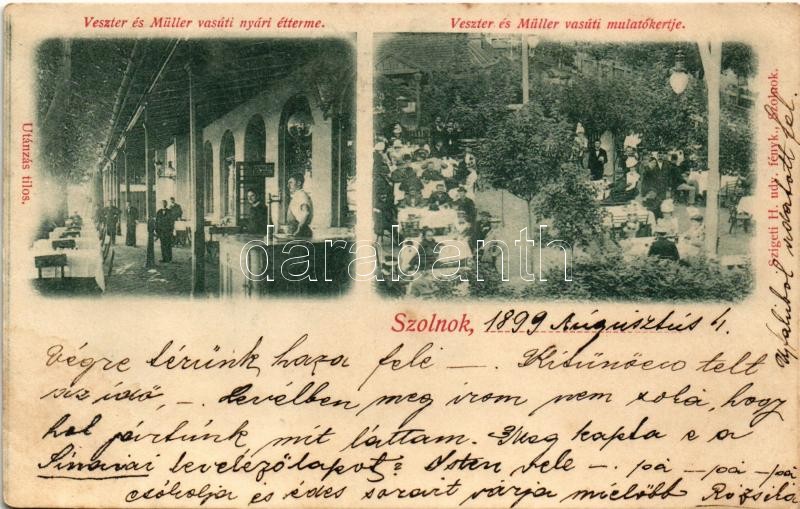 Veszter és Müller vasúti nyári étterme.
Veszter és Müller vasúti mulatókertje.
Utánzás tilos.
Szigeti H. udv. fényk., Szolnok.
darabanth
Szolnok, 1899 Augusztus 4.
Végre térünk haza felé —. Kitünően telt
az idő, —. Levélben meg irom nem soká, hogy
hol jártunk mit láttam. Meg kapta e a
Sinaiai levelezőlapot? Isten vele —. pá — pá — pá
csókolja és édes sorait várja mielőbb Rózsika